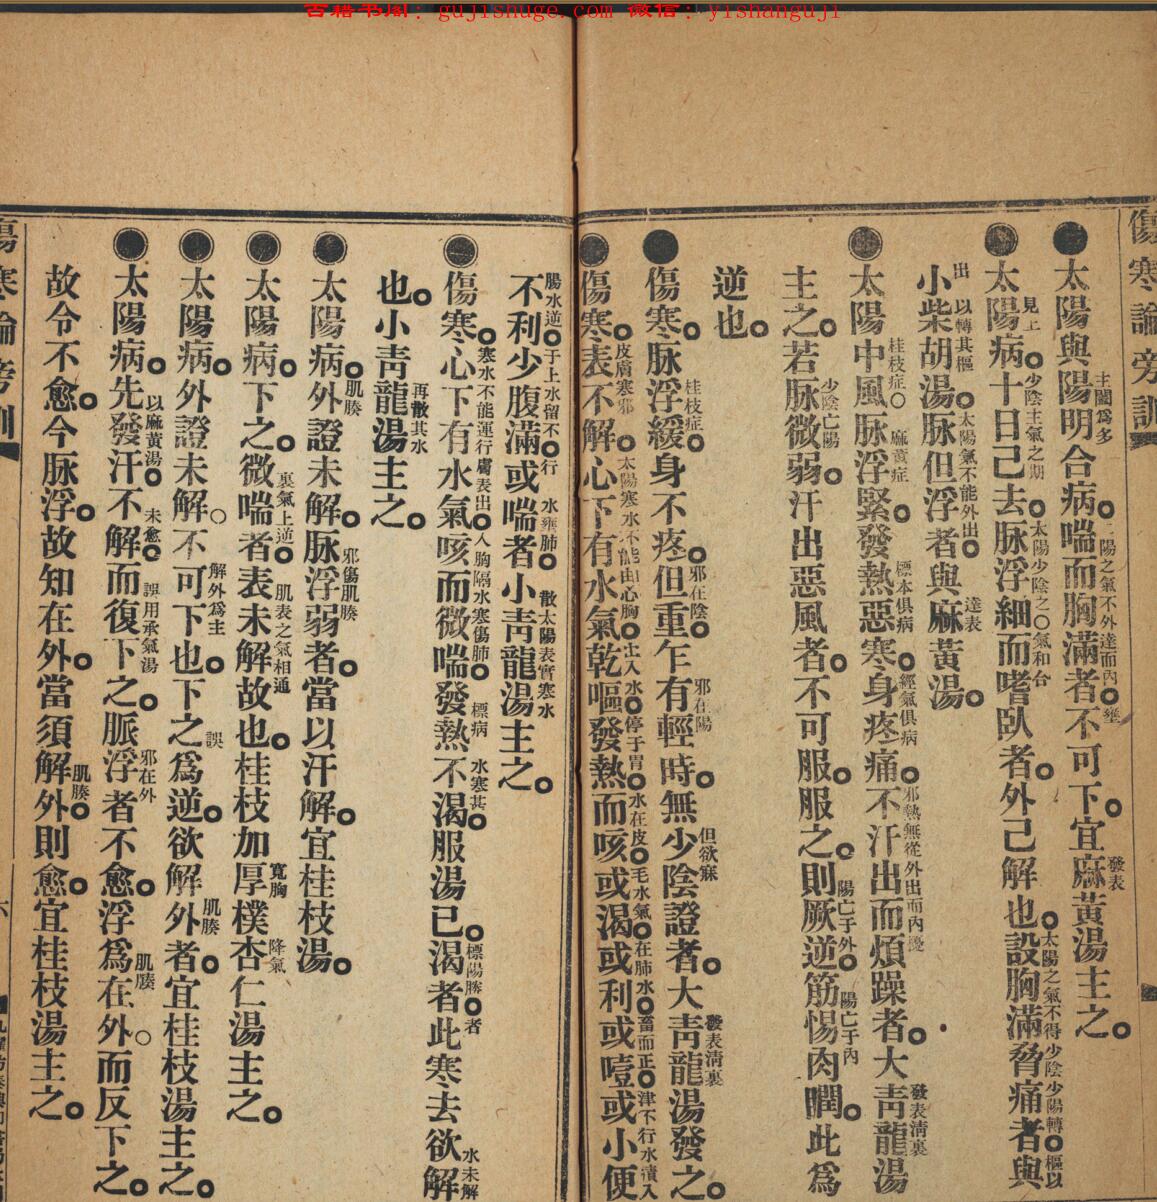 古籍书阁：gujishuge.com 微信：yishanguji
傷寒論旁訓
太陽與陽明合病喘而胸滿者不可下宜麻黃湯主之
主闔爲多
陽之氣不外達而內壅
發表
太陽病十日己去脉浮細而嗜臥者外己解也設胸滿脅痛者與
見上
少陰主氣之期
太陽少陰之氣和合
太陽之氣不得
少陰少陽轉樞以
小柴胡湯脉但浮者與麻黃湯
出
以轉其樞
太陽氣不能外出
達表
太陽中風脉浮緊發熱惡寒身疼痛不汗出而煩躁者大靑龍湯
桂枝症
麻黃症
標本俱病
經氣俱病
邪熱無從外出而內擾
發表淸裏
主之若脉微弱汗出惡風者不可服服之則厥逆筋惕肉瞤此爲
少陰亡陽
陽亡于外
陽亡于內
逆也
傷寒脉浮緩身不疼但重乍有輕時無少陰證者大靑龍湯發之
桂枝症
邪在陰
邪在陽
但欲寐
發表淸裏
傷寒表不解心下有水氣乾嘔發熱而咳或渴或利或噎或小便
皮膚寒邪
太陽寒水不能由心胸
出入
水停于胃
水在皮毛
水氣在肺
水畜而正津不行
水漬入
不利少腹滿或喘者小靑龍湯主之
腸
水逆于上
水留不行
水壅肺
散太陽表實寒水
傷寒心下有水氣咳而微喘發熱不渴服湯已渴者此寒去欲解
寒水不能運行膚表出入胸隔
水寒傷肺
標病
水寒甚
標陽勝者
水未解
也小靑龍湯主之
再散其水
太陽病外證未解脉浮弱者當以汗解宜桂枝湯
肌腠
邪傷肌腠
太陽病下之微喘者表未解故也桂枝加厚樸杏仁湯主之
裏氣上逆
肌表之氣相通
寬胸
降氣
太陽病外證未解不可下也下之爲逆欲解外者宜桂枝湯主之
解外爲主
誤
肌腠
太陽病先發汗不解而復下之脈浮者不愈浮爲在外而反下之
以麻黃湯
未愈
誤用承氣湯
邪在外
肌腠
故令不愈今脉浮故知在外當須解外則愈宜桂枝湯主之
肌腠
傷寒論旁訓
六